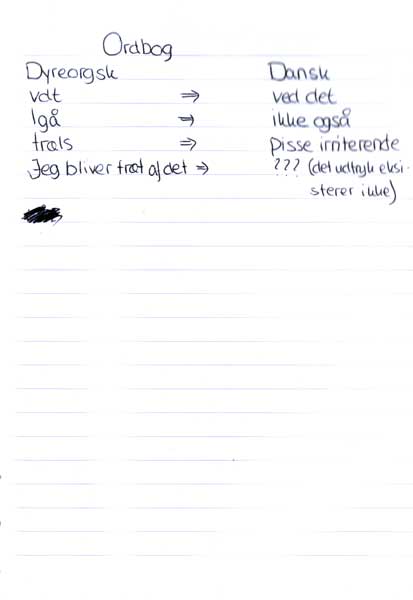 Ordbog
Dyreorgsk Dansk
vdt ⇒ ved det
Igå ⇒ ikke også
træls ⇒ Pisse irriterende
Jeg bliver træt af det ⇒ ??? (det udtryk eksi-
sterer ikke)